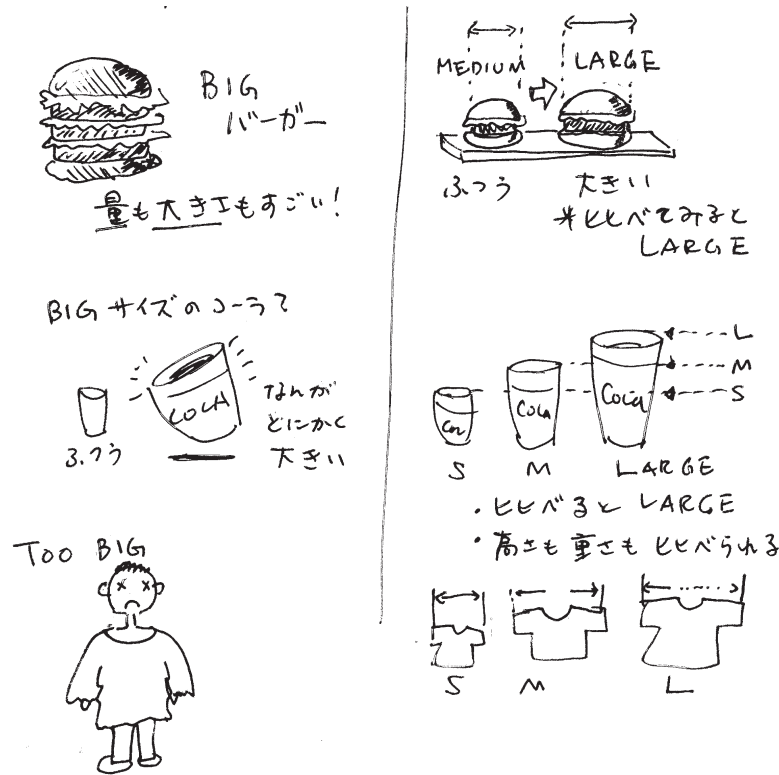 BIG
バーガー
量も大きさもすごい!
BIGサイズのコーラて
COCA
ふつう
なんが
とにかく
大きい
TOO BIG
MEDIUM
LARGE
ふつう
大きい
*ヒヒべてみると
LARGE
L
M
S
COLA
COLA
S
M
LARGE
・ヒヒべるとLARGE
・高さも重さもヒヒべられる
S
M
L